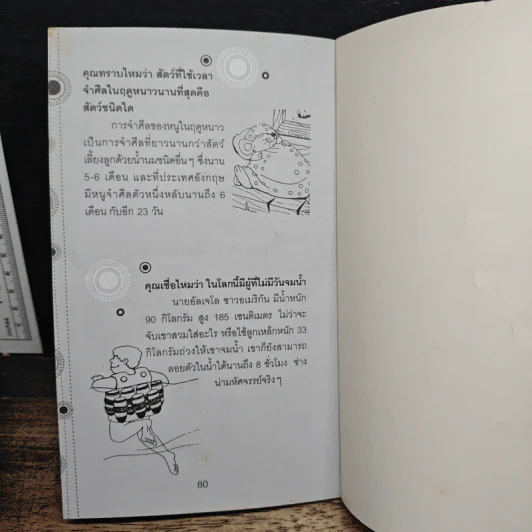 คุณทราบไหมว่า สัตว์ที่ใช้เวลา
จำศีลในฤดูหนาวนานที่สุดคือ
สัตว์ชนิดใด
การจำศีลของหนูในฤดูหนาว
เป็นการจำศีลที่ยาวนานกว่าสัตว์
เลี้ยงลูกด้วยน้ำนมชนิดอื่นๆ ซึ่งนาน
5-6 เดือน และที่ประเทศอังกฤษ
มีหนูจำศีลตัวหนึ่งหลับนานถึง 6
เดือน กับอีก 23 วัน
คุณเชื่อไหมว่า ในโลกนี้มีผู้ที่ไม่มีวันจมน้ำ
นายอัลเจโล ชาวอเมริกัน มีน้ำหนัก
90 กิโลกรัม สูง 185 เซนติเมตร ไม่ว่าจะ
จับเขาสวมใส่อะไร หรือใช้ลูกเหล็กหนัก 33
กิโลกรัมถ่วงให้เขาจมน้ำ เขาก็ยังสามารถ
ลอยตัวในน้ำได้นานถึง 8 ชั่วโมง ช่าง
น่ามหัศจรรย์จริงๆ
80